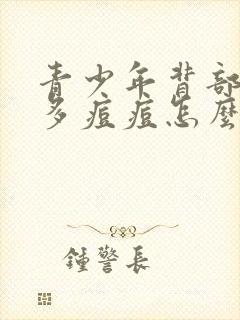 青少年背部
多痘痘怎麼
鍾警長